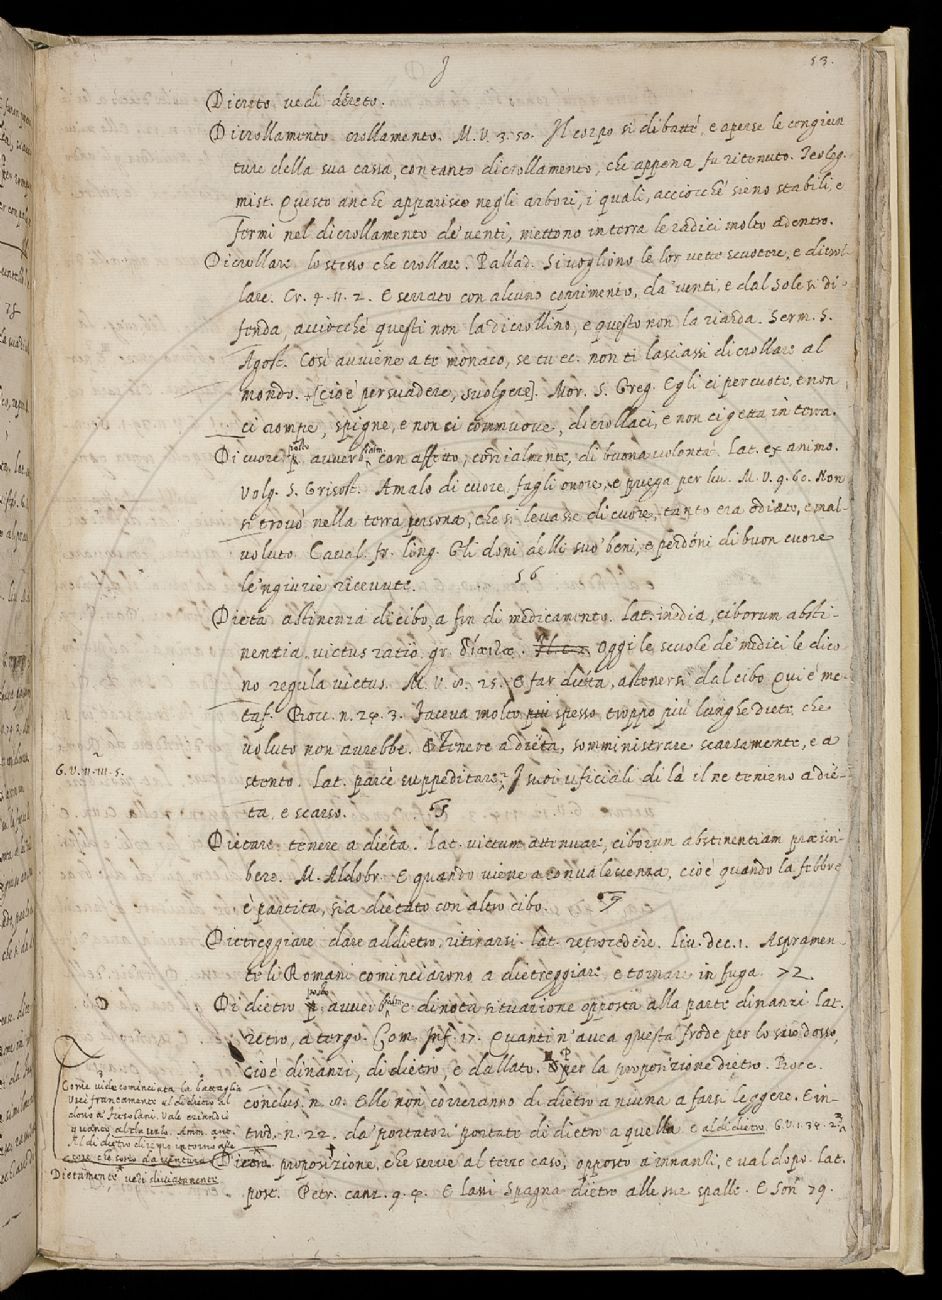 53.
Dicreto vedi decreto.
Dicrollamento crollamento. M. V. 3. 50. Il corpo si dibatté, e aperse le congiun
ture della sua cassa, con tanto dicrollamento, che appena fu ritenuto. Teolog.
mist. Questo anche apparisce negli arbori, i quali, acciocchè sieno stabili, e
fermi nel dicrollamento de' venti, mettono in terra le radici molto adentro.
Dicrollare lo stesso che crollare. Pallad. Si vogliono le lor vette scuotere, e dicrol
lare. Cr. 4. 11. 2. E serrato con alcuno coprimento, da' venti, e dal Sole si di
fenda acciocchè questi non la dicrollino, e questo non la riarda. Serm. S.
Agost. Così avviene a te monaco, se tu ec. non ti lasciassi dicrollare al
mondo. [cioè persuadere, svolgere]. Mor. S. Greg. Egli ci percuote, e non
ci rompe, spigne, e non ci commuove, dicrollaci, e non ci getta in terra.
Di cuore posto avverbialm. con affetto, cordialmente, di buona volontà. Lat. ex animo.
Volg. S. Grisost. Amalo di cuore, fagli onore, e priega per lui. M. V. 9. 60. Non
si trovò nella terra persona, che si levasse di cuore, tanto era odiato, e mal
voluto. Caval. fr. ling. Gli doni delli suo' beni, e perdoni di buon cuore
le 'ngiurie ricevute. 56
Dieta astinenza di cibo, a fin di medicamento. Lat. inedia, ciborum absti-
nentia, victus ratio, gr. δίαιτα. Oggi le scuole de' medici le dico
no regula victus. M. V. 8. 25. E far dieta, astenersi dal cibo. Qui è me-
taf. Bocc. n. 24. 3. Faceva molto più spesso troppo più lunghe diete, che
voluto non avrebbe. E Tenere a dieta, somministrare scarsamente, e a
G. V. 11. 111. 5.
stento. Lat. parcè suppeditare. I suoi uficiali di là il ne tenieno a die-
ta, e scarso.
Dietare tenere a dieta. Lat. victum attenuare, ciborum abstinentiam præscri-
bere. M. Aldobr. E quando viene a convalescenza, cioè quando la febbre
è partita, sia dietato con altro cibo.
Dietreggiare dare addietro, ritirarsi. Lat. retrocedere. Liv. dec. 1. Aspramen-
te li Romani cominciarono a dietreggiare, e tornare in fuga.
Di dietro posto avverbialm. e dinota situazione opposta alla parte dinanzi. Lat.
retro, a tergo. Com. Inf. 17. Quanti n' avea questa frode per lo suo dosso,
cioè dinanzi, di dietro, e dallato. per la proposizione dietro. Bocc.
conclus. n. 8. Elle non correranno di dietro a niuna a farsi leggere. E in-
trod. n. 22. da' portatori portate di dietro a quella e al di dietro. G. V.
Come vide cominciata la battaglia
uscì francamente al di dietro al
dosso a'
Dietro proposizione, che serve al terzo caso, opposto a innanzi, e val dopo. Lat.
Dietamente vedi divietamente
post. Petr. canz. 9. 4. E lassi Spagna dietro alle sue spalle. E Son